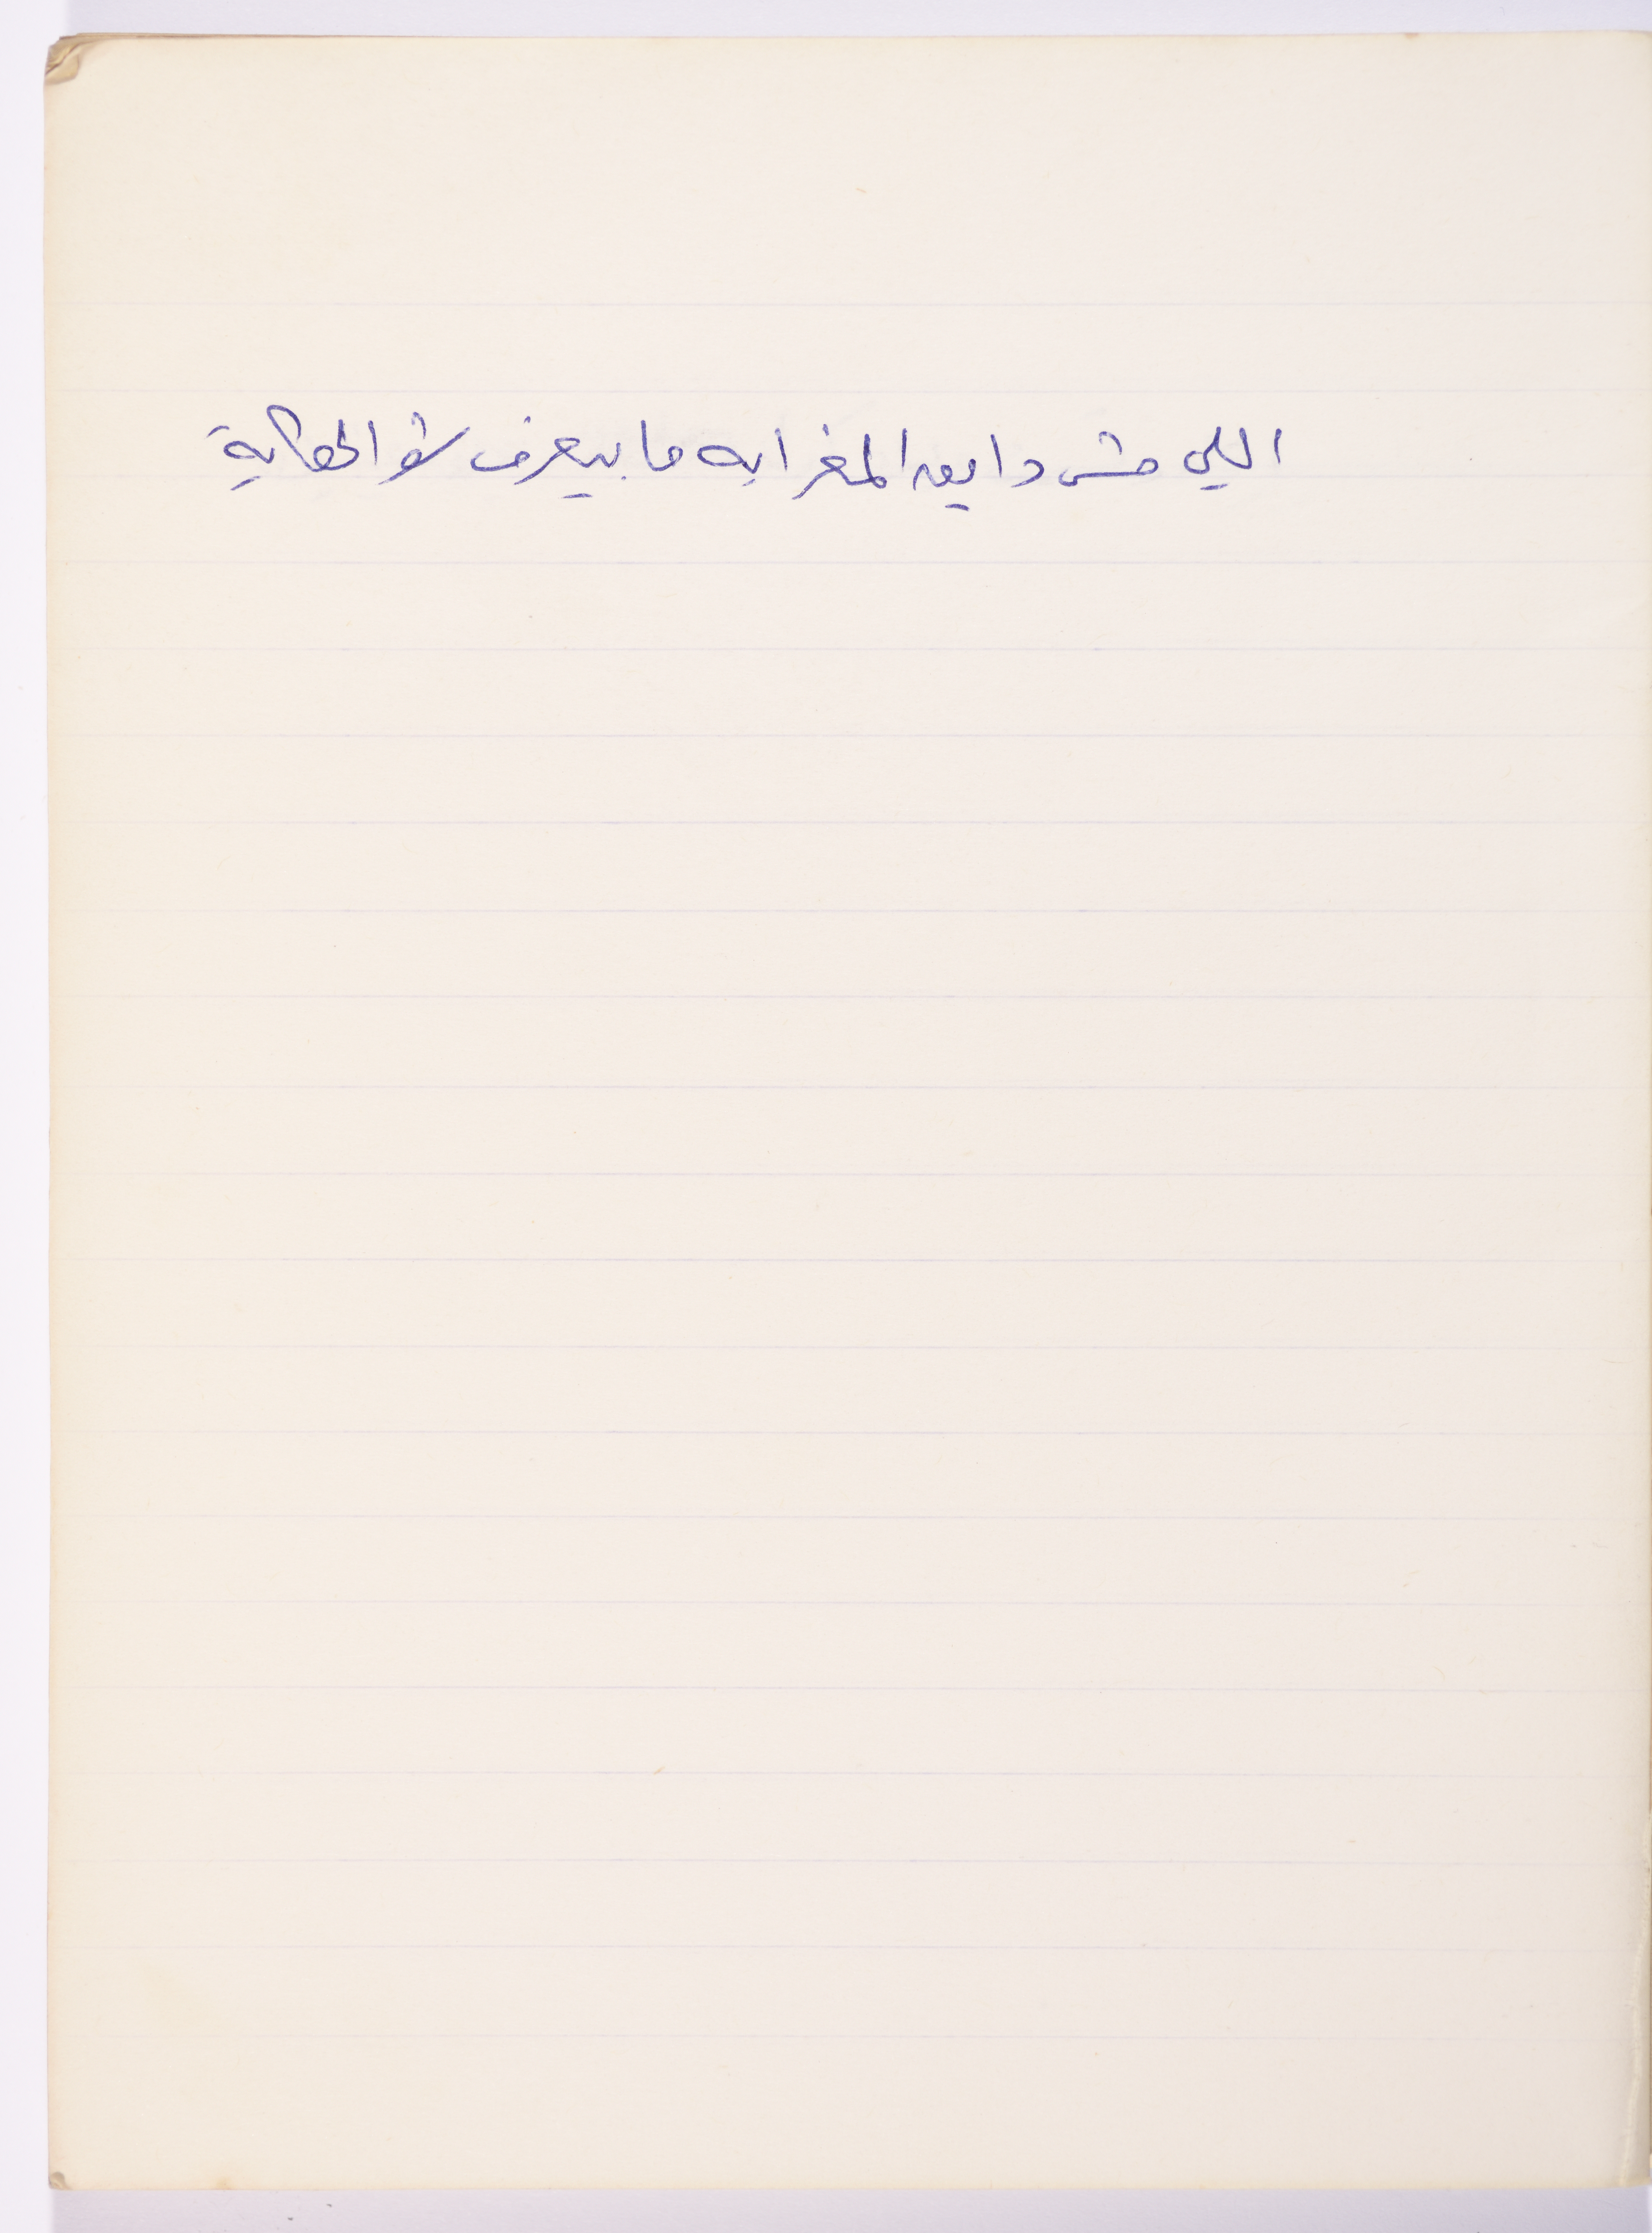 اللي مش دايق المغرابه ما بيعرف شو الحكاية